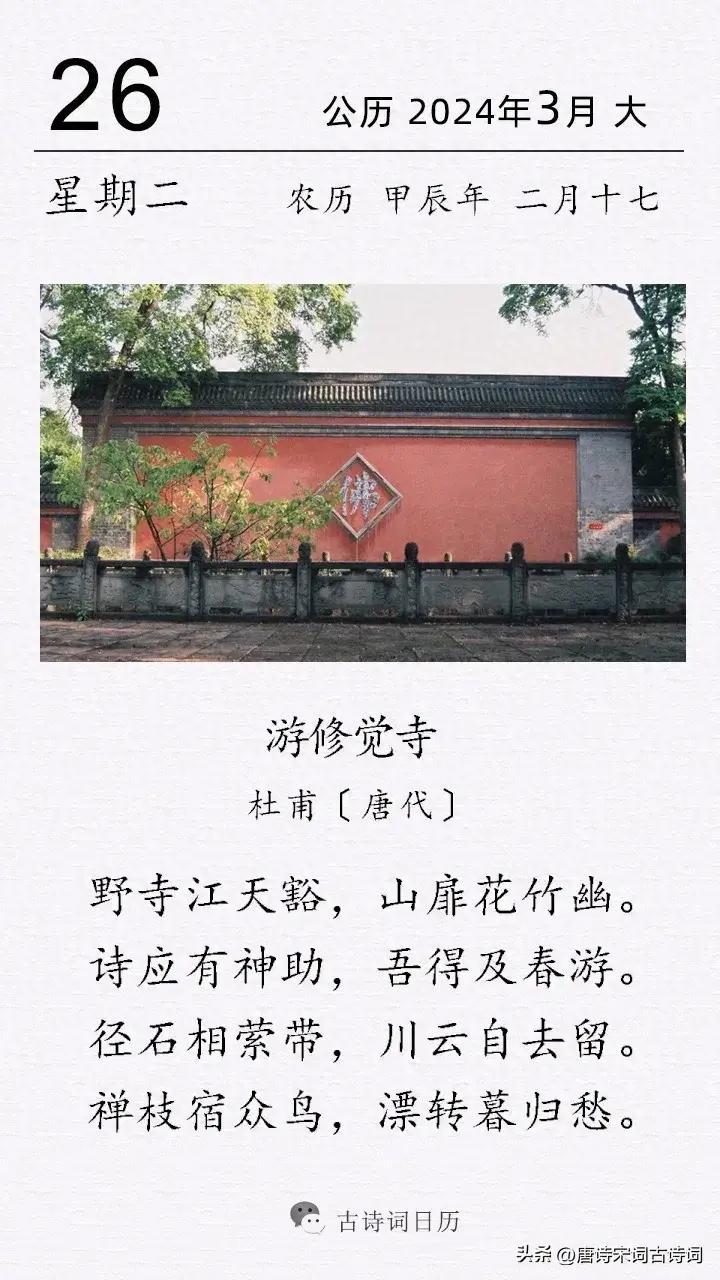 26
公历 2024年3月 大
星期二
农历 甲辰年 二月十七
佛
游修觉寺
杜甫〔唐代〕
野寺江天豁，山扉花竹幽。
诗应有神助，吾得及春游。
径石相萦带，川云自去留。
禅枝宿众鸟，漂转暮归愁。
古诗词日历
头条 @唐诗宋词古诗词